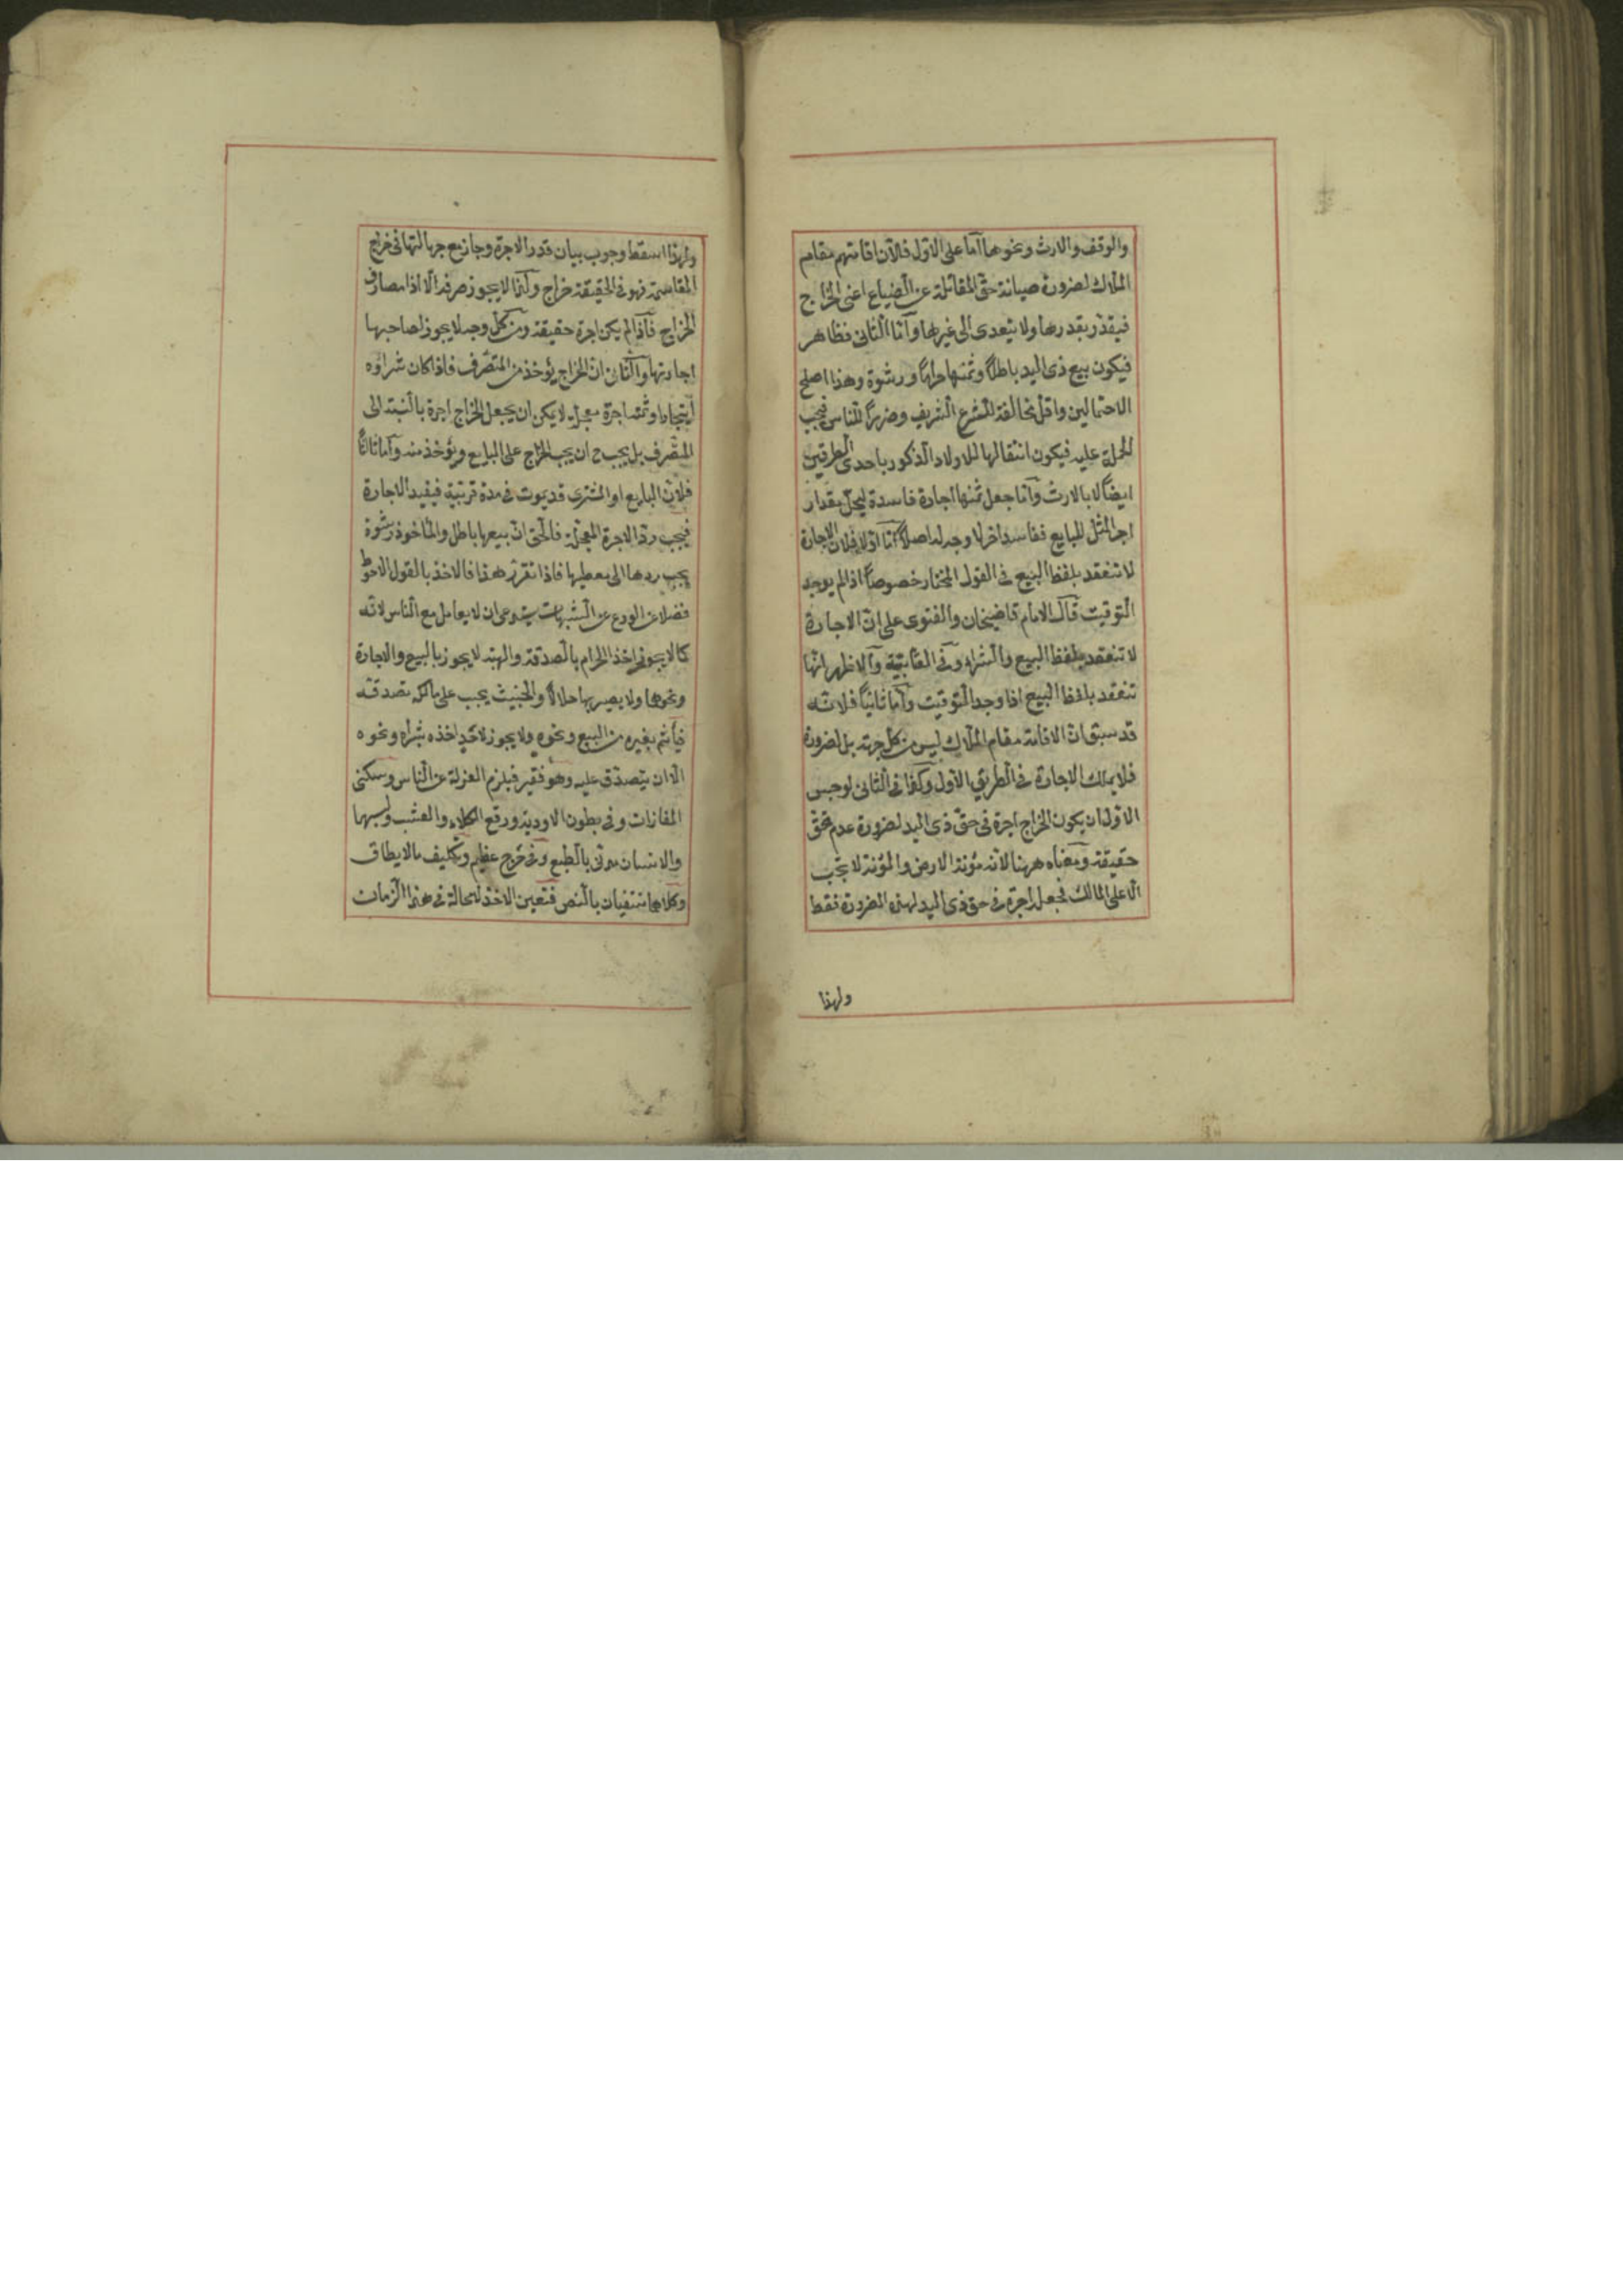 والوقف والارث ونحوهما اما على الاول فلان اقامتهم مقام
الملاك لضرورة صيانة حق المقاتلة عن الضياع اعنى الخراج
فيقدر بقدرها ولا يتعدى الى غيرها واما الثانى فظاهر
فيكون بيع ذى اليد باطلاً وثمنها حراماً ورشوة وهذا اصلح
الاحتمالين واقل مخالفة للشرع الشريف وضرراً للناس فيجب
الحمل عليه فيكون انتقالها للاولاد الذكور باحدى الطريقين
ايضاً لا بالارث واما جعل ثمنها اجارة فاسدة ليحل بمقدار
اجر المثل للبايع ففاسد اخر لا وجه له اصلاً اما اولا فلان الاجارة
لا تنعقد بلفظ البيع فى القول المختار خصوصاً اذا لم يوجد
التوقيت قال الامام قاضيخان والفتوى على ان الاجارة
لا تنعقد بلفظ البيع والشراء وفى العتابية والاظهر انها
تنعقد بلفظ البيع اذا وجد التوقيت واما ثانياً فلانه
قد سبق ان الاقامة مقام الملاك ليس من كل جهة بل لضرورة
فلا يملك الاجارة فى الطريق الاول وكذا فى الثانى لوجهين
الاول ان يكون الخراج اجرة فى حق ذى اليد لضرورة عدم تحقق
حقيقته ومعناه ههنا لانه مؤنة الارض والمؤنة لا تجب
الا على المالك فجعل اجرة فى حق ذى اليد لهذه الضرورة فقط
ولهذا
ولهذا اسقط وجوب بيان قدر الاجرة وجاز مع جهالتها فى خراج
المقاسمة فهو فى الحقيقة خراج ولذا لا يجوز صرفه الا اذا مصارف
الخراج فاذا لم يكن اجرة حقيقة ومن كل وجه لا يجوز لصاحبها
اجارتها والثانى ان الخراج يؤخذ من المتصرف فاذا كان شراؤه
استيجارا وثمنه اجرة معجلة لا يمكن ان يجعل الخراج اجرة بالنسبة الى
المتصرف بل يجب ح ان يجب الخراج على البايع ويؤخذ منه واما ثالثاً
فلان البايع او المشترى قد يموت فى مدة قريبة فيفيد الاجارة
فيجب رد الاجرة المعجلة فالحق ان بيعها باطل والماخوذ رشوة
يجب ردها الى معطيها فاذا تقرر هذا فالاخذ بالقول الاحوط
فضلا عن الورع عن الشبهات يستدعى ان لا يعامل مع الناس لانه
كما لا يجوز اخذ الحرام بالصدقة والهبة لا يجوز بالبيع والاجارة
ونحوها ولا يصير بها حلالاً والخبيث يجب على مالكه تصدقه
فيأثم بغيره من البيع ونحوه ولا يجوز لاحد اخذه بشراء ونحوه
الا ان يتصدق عليه وهو فقير فيلزم العزلة عن الناس وسكنى
المفازات وفى بطون الاودية ورقع الكلاء والعشب ولبسهما
والانسان مدنى بالطبع وفى حرج عظيم وتكليف مالايطاق
وكلاهما منتفيان بالنص فتعين الاخذ لا محالة فى هذا الزمان